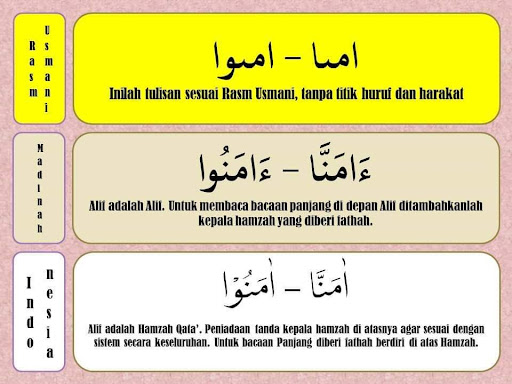 Rasm Usmani
امىا – امىوا
Inilah tulisan sesuai Rasm Usmani, tanpa titik huruf dan harakat
Madinah
ءَامَنَّا – ءَامَنُوا
Alif adalah Alif. Untuk membaca bacaan panjang di depan Alif ditambahkanlah
kepala hamzah yang diberi fathah.
Indo nesia
اٰمَنَّا – اٰمَنُوْا
Alif adalah Hamzah Qata'. Peniadaan tanda kepala hamzah di atasnya agar sesuai dengan
sistem secara keseluruhan. Untuk bacaan Panjang diberi fathah berdiri di atas Hamzah.